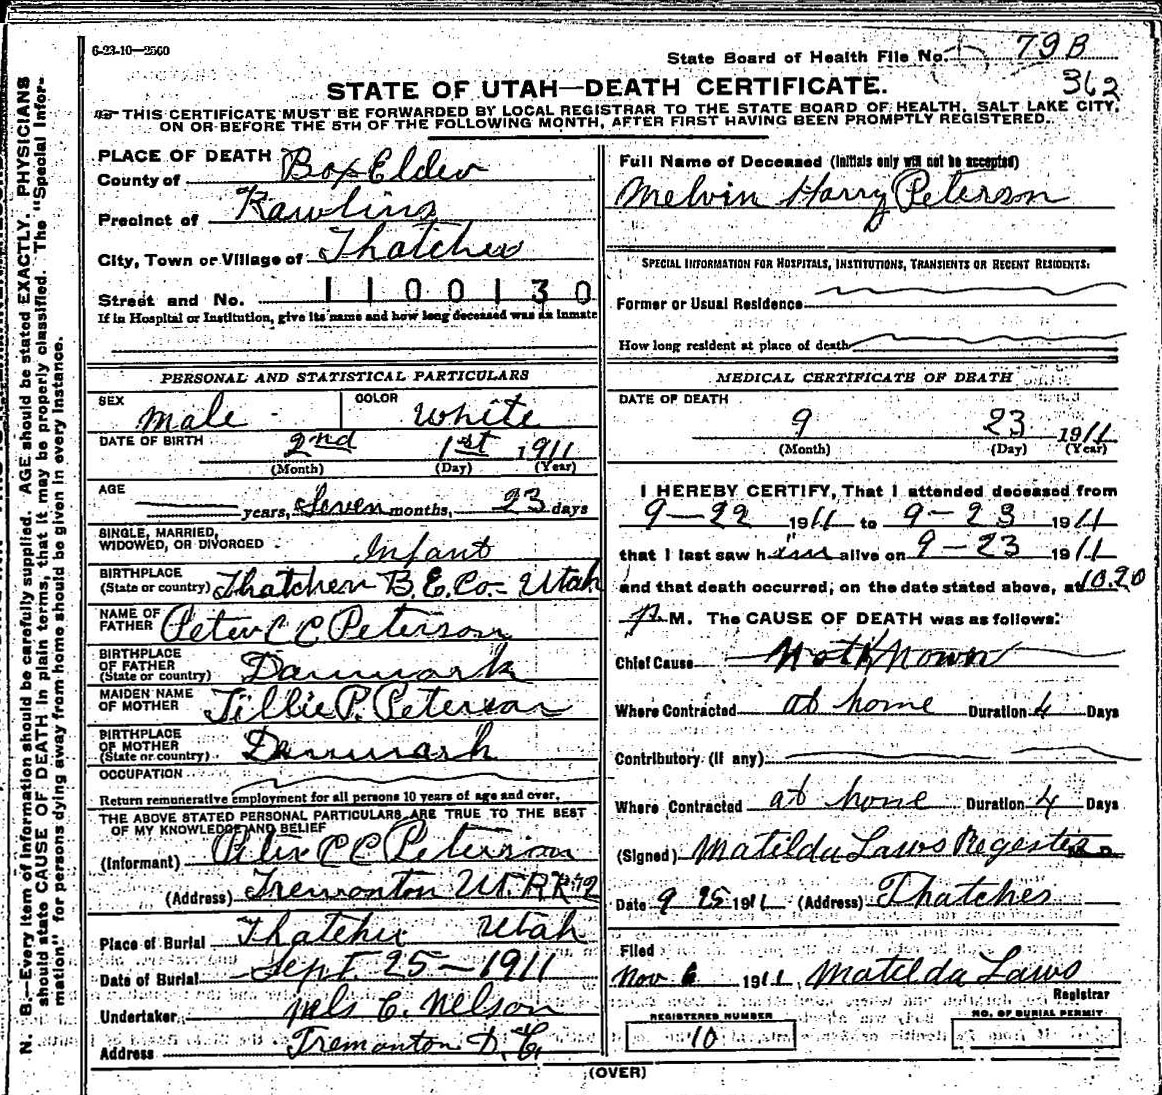 6-23-10—2500
State Board of Health File No. 79B
362
STATE OF UTAH—DEATH CERTIFICATE.
THIS CERTIFICATE MUST BE FORWARDED BY LOCAL REGISTRAR TO THE STATE BOARD OF HEALTH, SALT LAKE CITY,
ON OR BEFORE THE 5TH OF THE FOLLOWING MONTH, AFTER FIRST HAVING BEEN PROMPTLY REGISTERED.
PLACE OF DEATH
County of Box Elder
Precinct of Rawlins
City, Town or Village of Thatcher
Street and No. 1100130
If in Hospital or Institution, give its name and how long deceased was an inmate
PERSONAL AND STATISTICAL PARTICULARS
SEX male COLOR white
DATE OF BIRTH 2nd 1st 1911
(Month) (Day) (Year)
AGE
years, Seven months, 23 days
SINGLE, MARRIED,
WIDOWED, OR DIVORCED Infant
BIRTHPLACE
(State or country) Thatcher B.E. Co.- Utah
NAME OF
FATHER Peter C C Peterson
BIRTHPLACE
OF FATHER
(State or country) Danmark
MAIDEN NAME
OF MOTHER Tillie P. Peterson
BIRTHPLACE
OF MOTHER
(State or country) Danmark
OCCUPATION
Return remunerative employment for all persons 10 years of age and over.
THE ABOVE STATED PERSONAL PARTICULARS ARE TRUE TO THE BEST
OF MY KNOWLEDGE AND BELIEF
(Informant) Peter C C Peterson
(Address) Tremonton Ut. RR #2
Place of Burial Thatcher Utah
Date of Burial Sept. 25-1911
Undertaker Nels C. Nelson
Address Tremonton
Full Name of Deceased (Initials only will not be accepted)
Melvin Harry Peterson
SPECIAL INFORMATION FOR HOSPITALS, INSTITUTIONS, TRANSIENTS OR RECENT RESIDENTS:
Former or Usual Residence
How long resident at place of death
MEDICAL CERTIFICATE OF DEATH
DATE OF DEATH
9 23 1911
(Month) (Day) (Year)
I HEREBY CERTIFY, That I attended deceased from
9-22 1911 to 9-23 1911
that I last saw him alive on 9-23 1911
and that death occurred, on the date stated above, at 10.20
P. M. The CAUSE OF DEATH was as follows:
Chief Cause Not Known
Where Contracted at home Duration 4 Days
Contributory (if any)
Where Contracted at home Duration 4 Days
(Signed) Matilda Laws Regester M. D.
Date 9 25 1911 (Address) Thatcher
Filed
Nov 6 1911 Matilda Laws
Registrar
REGISTERED NUMBER
10
NO. OF BURIAL PERMIT
(OVER)
N. B.—Every item of information should be carefully supplied. AGE should be stated EXACTLY. PHYSICIANS
should state CAUSE OF DEATH in plain terms, that it may be properly classified. The "Special Infor-
mation" for persons dying away from home should be given in every instance.